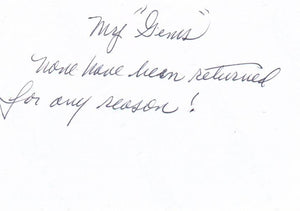 My "Gems"
None have been returned
for any reason!